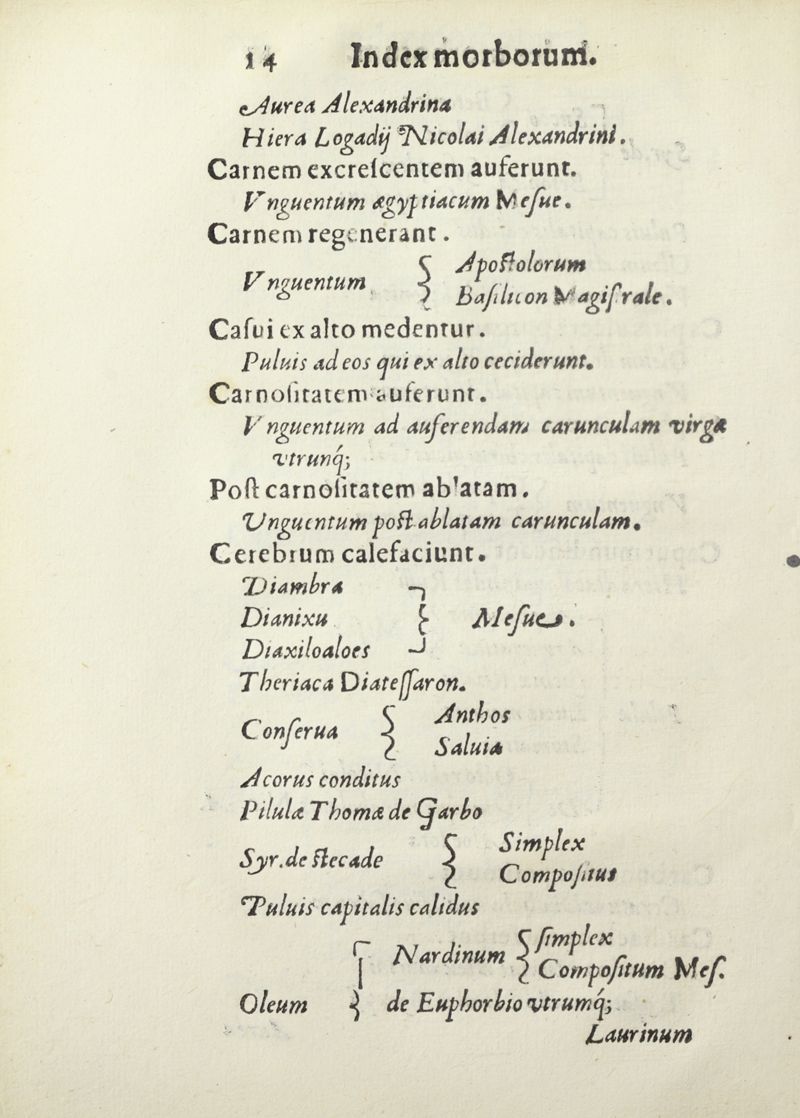 14 Index morborum.
Aurea Alexandrina
Hiera Logadij Nicolai Alexandrini.
Carnem excreſcentem auferunt.
Vnguentum ægyptiacum Meſue.
Carnem regenerant.
Vnguentum { Apoſtolorum
Baſilicon Magiſrale.
Caſui ex alto medentur.
Puluis ad eos qui ex alto ceciderunt.
Carnoſitatem auferunt.
Vnguentum ad auferendam carunculam virgæ
vtrunq́;
Poſt carnoſitatem ablatam.
Vnguentum poſt ablatam carunculam.
Cerebrum calefaciunt.
Diambra
Dianixu } Meſue.
Diaxiloaloes
Theriaca Diateſſaron.
Conſerua { Anthos
Saluia
Acorus conditus
Pilulæ Thomæ de Garbo
Syr. de ſtecade { Simplex
Compoſitus
Puluis capitalis calidus
Nardinum { ſimplex
Compoſitum Meſ.
Oleum { de Euphorbio vtrumq́;
Laurinum